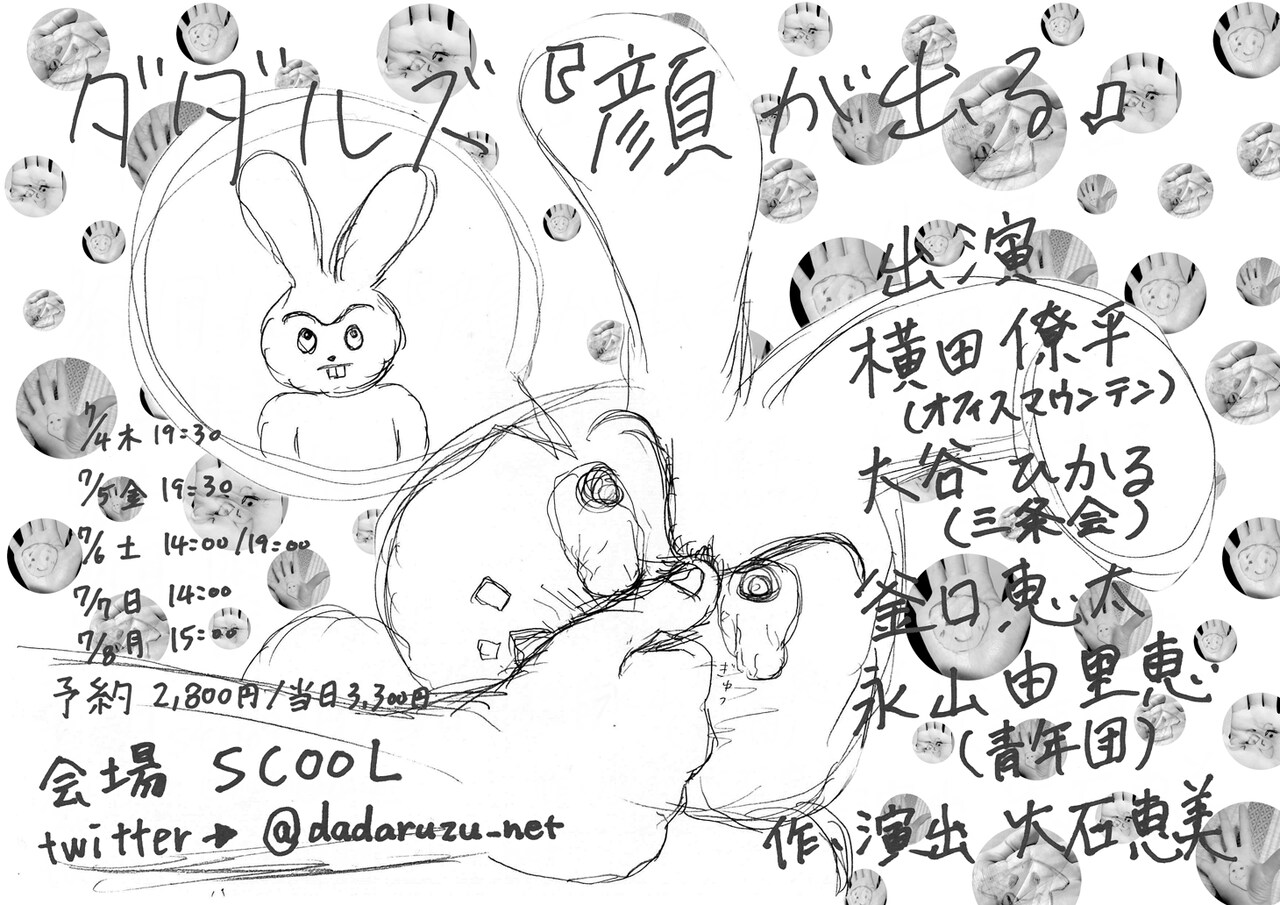 ダダルズ『顔が出ちる』
出演
横田僚平
(オフィスマウンテン)
大谷ひかる
(三条会)
釜口恵太
永山由里恵
(青年団)
作・演出 大石恵美
7/4木 19:30
7/5金 19:30
7/6土 14:00/19:00
7/7日 14:00
7/8月 15:00
予約 2,800円/当日3,300円
会場 SCOOL
twitter→ @dadaruzu_net
ぎゅっ